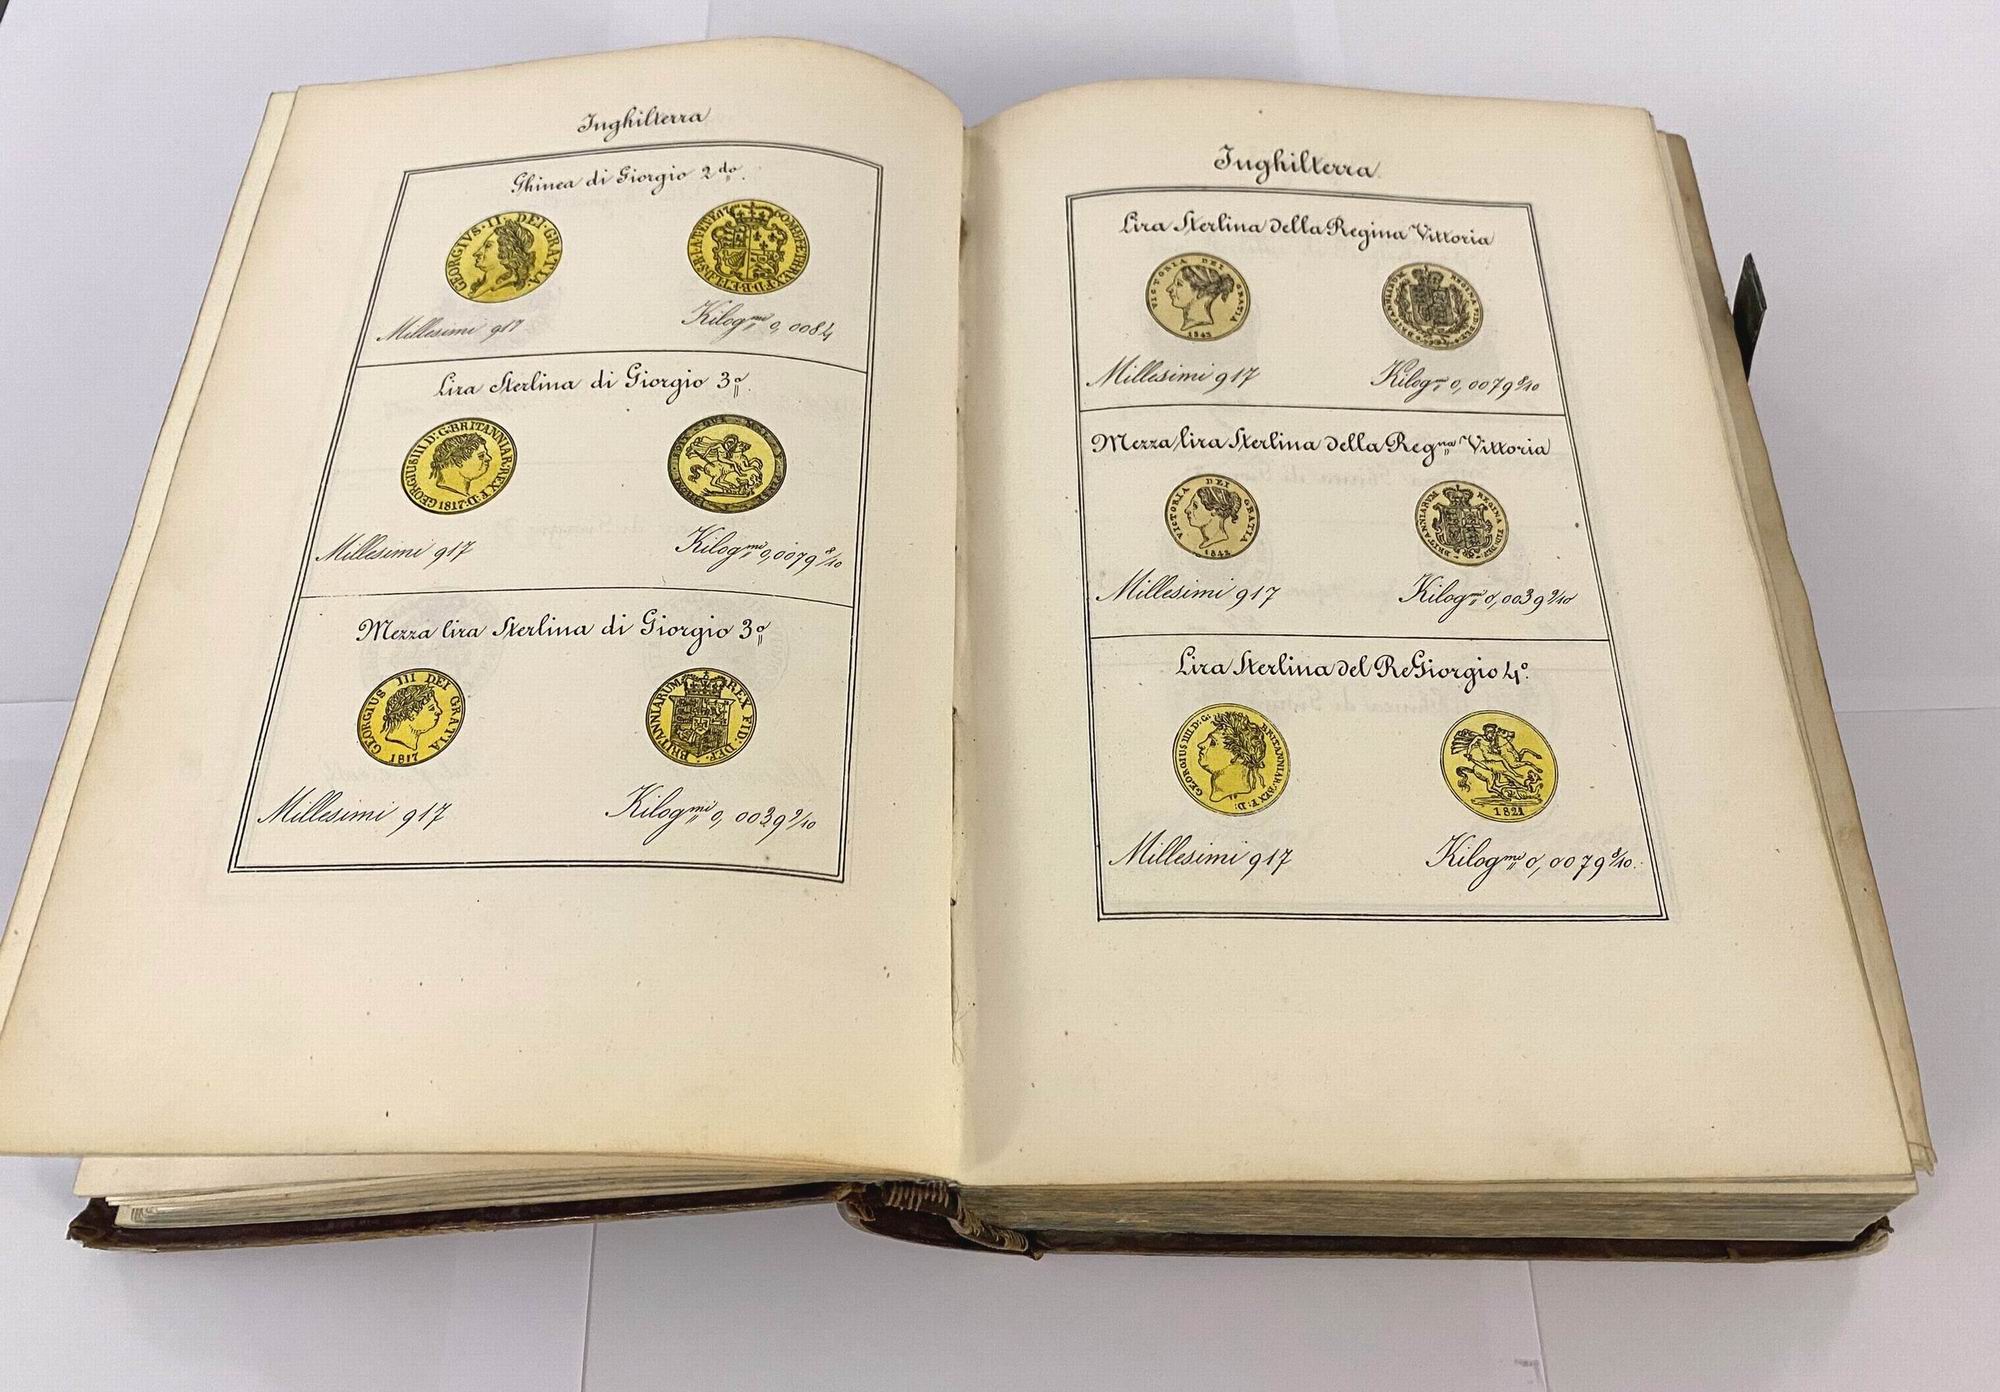 Inghilterra
Ghinea di Giorgio 2do.
GEORGIVS·II· DEI·GRATIA·
Millesimi 917
Kilogmi 0,0084
Lira Sterlina di Giorgio 3o.
GEORGIUS III D:G:BRITANNIAR:REX F:D:
1817
Millesimi 917
Kilogmi 0,0079 8/10
Mezza lira Sterlina di Giorgio 3o
GEORGIUS III DEI GRATIA
1817
BRITANNIARUM REX FID: DEF:
Millesimi 917
Kilogmi 0,0039 9/10
Inghilterra
Lira Sterlina della Regina Vittoria
VICTORIA DEI GRATIA
1843
BRITANNIARUM REGINA FID: DEF:
Millesimi 917
Kilogmi 0,0079 8/10
Mezza lira Sterlina della Regna Vittoria
VICTORIA DEI GRATIA
1842
BRITANNIARUM REGINA FID: DEF:
Millesimi 917
Kilogmi 0,0039 9/10
Lira Sterlina del Re Giorgio 4o.
GEORGIUS IIII D:G: BRITANNIAR:REX F:D:
1821
Millesimi 917
Kilogmi 0,0079 8/10.